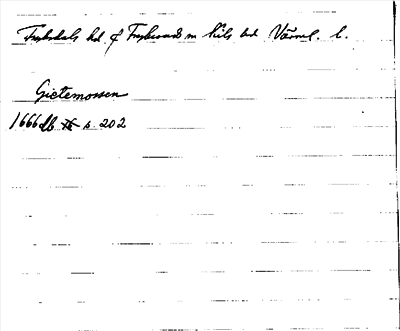 Fryksdals hd f Fryksände m Kils hd Värml. l.
Gietemossen
1666 db s. 202